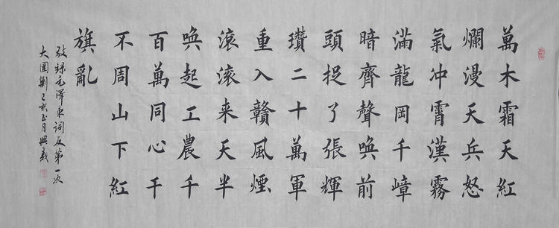 萬木霜天紅
爛漫天兵怒
氣冲霄漢霧
滿龍岡千嶂
暗齊聲喚前
頭捉了張輝
瓚二十萬軍
重入贛風煙
滾滾来天半
喚起工農千
百萬同心干
不周山下紅
旗亂
敬録毛澤東詞反第一次
大圍剿